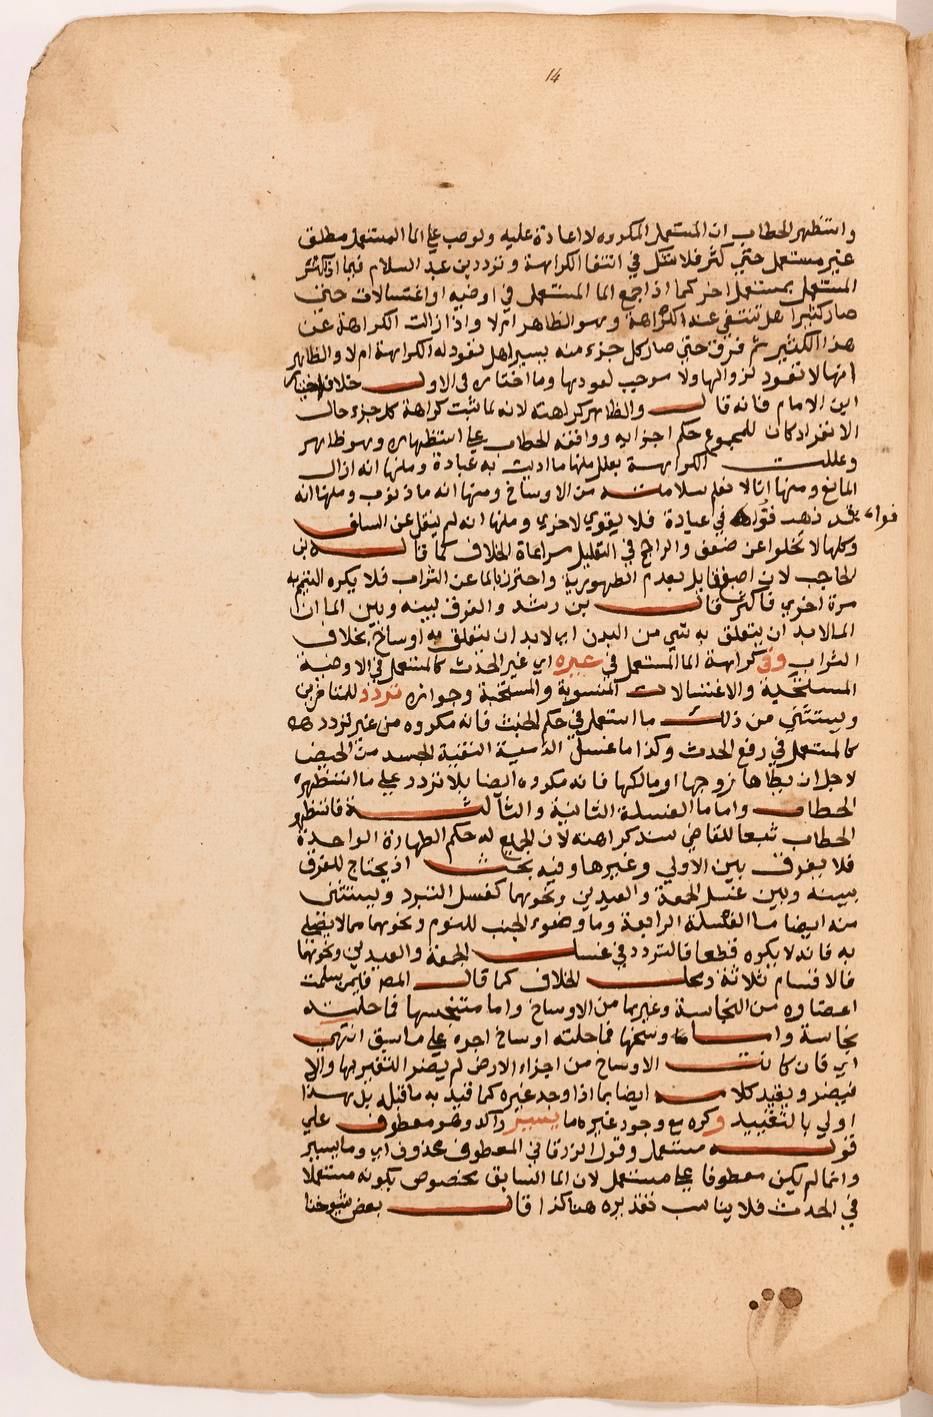 14
واستظهر الحطاب ان المستعمل المكروه لا اعادة عليه ولو صب على الما المستعمل مطلق
غير مستعمل حتى كثر فلا شك في انتفا الكراهة وتردد بن عبد السلام فيما اذا كثر
المستعمل بمستعمل اخر كما اذا جمع الما المستعمل في اوضيه او اغتسالات حتى
صار كثيرا هل تنتفي عنه الكراهة وهو الظاهر ام لا واذا زالت الكراهة عن
هذا الكثير ثم فرق حتى صار كل جزء منه يسيرا هل تعود له الكراهة ام لا والظاهر
انها لا تعود لزوالها ولا موجب لعودها وما اختاره في الاول خلاف اختيار
ابن الامام فانه قال والظاهر كراهته لانه لما ثبت كراهة كل جزء حال
الانفراد كان للمجموع حكم اجزايه ووافقه الحطاب على استظهاره وهو ظاهر
وعللت الكراهة بعلل منها ما اديت به عبادة ومنها انه ازال
المانع ومنها اننا لا نعلم سلامته من الاوساخ ومنها انه ماذنوب ومنها انه
قد ذهب قواه في عبادة فلا يقوي لاخري ومنها انه لم ينقل عن السلف
قواه
وكلها لا تخلوا عن ضعف والراجح في التعليل مراعاة الخلاف كما قاله بن
الحاجب لان اصبغ قايل بعدم الطهورية واحترز بالما عن التراب فلا يكره التيمم به
مرة اخري فاكثر قال بن رشد والفرق بينه وبين الما ان
الما لابد ان يتعلق به شي من البدن اي لابد ان يتعلق به اوساخ بخلاف
التراب وفي كراهة الما المستعمل في غيره اي غير الحدث كالمستعمل في الاوضية
المستحبة والاغتسالات المسنونة والمستحبة وجوازه تردد للمتاخرين
ويستثنى من ذلك ما استعمل في حكم الخبث فانه مكروه من غير تردد
كالمستعمل في رفع الحدث وكذا ما غسل الذمية النقية الجسد من الحيض
لاجل ان يطاها زوجها او مالكها فانه مكروه ايضا بلا تردد على ما استظهره
الحطاب واما ما الغسلة الثانية والثالثة فاستظهر
الحطاب تبعا للقاضي سند كراهته لان الجميع له حكم الطهارة الواحدة
فلا يفرق بين الاولي وغيرها وفيه بحث اذ يحتاج للفرق
بينه وبين غسل الجمعة والعيدين ونحوهما كغسل التبرد ويستثنى
منه ايضا ما الغسلة الرابعة وما وضوء الجنب للنوم ونحوهما مما لا يصلي
به فانه لا يكره قطعا فالتردد في غسل الجمعة والعيدين ونحوهما
فالاقسام ثلاثة ومحل الخلاف كما قال المص فيمن سلمت
اعضاوه من النجاسة وغيرها من الاوساخ واما متنجسها فما حلته
نجاسة واما وسخها فما حلته اوساخ اجره على ما سبق انتهى
اي فان كانت الاوساخ من اجزاء الارض لم يضر التغير بها والا
فيضر ويقيد كلامه ايضا بما اذا وجد غيره كما قيد به ما قبله بل هذا
اولي بالتقييد وكره مع وجود غيره ما يسير راكد وهو معطوف علي
قوله مستعمل وقول الزرقاني المعطوف محذوف اي وما يسير
وانما لم يكن معطوفا على مستعمل لان الما السابق مخصوص بكونه مستعملا
في الحدث فلا يناسب تقديره هنا كذا قال بعض شيوخنا